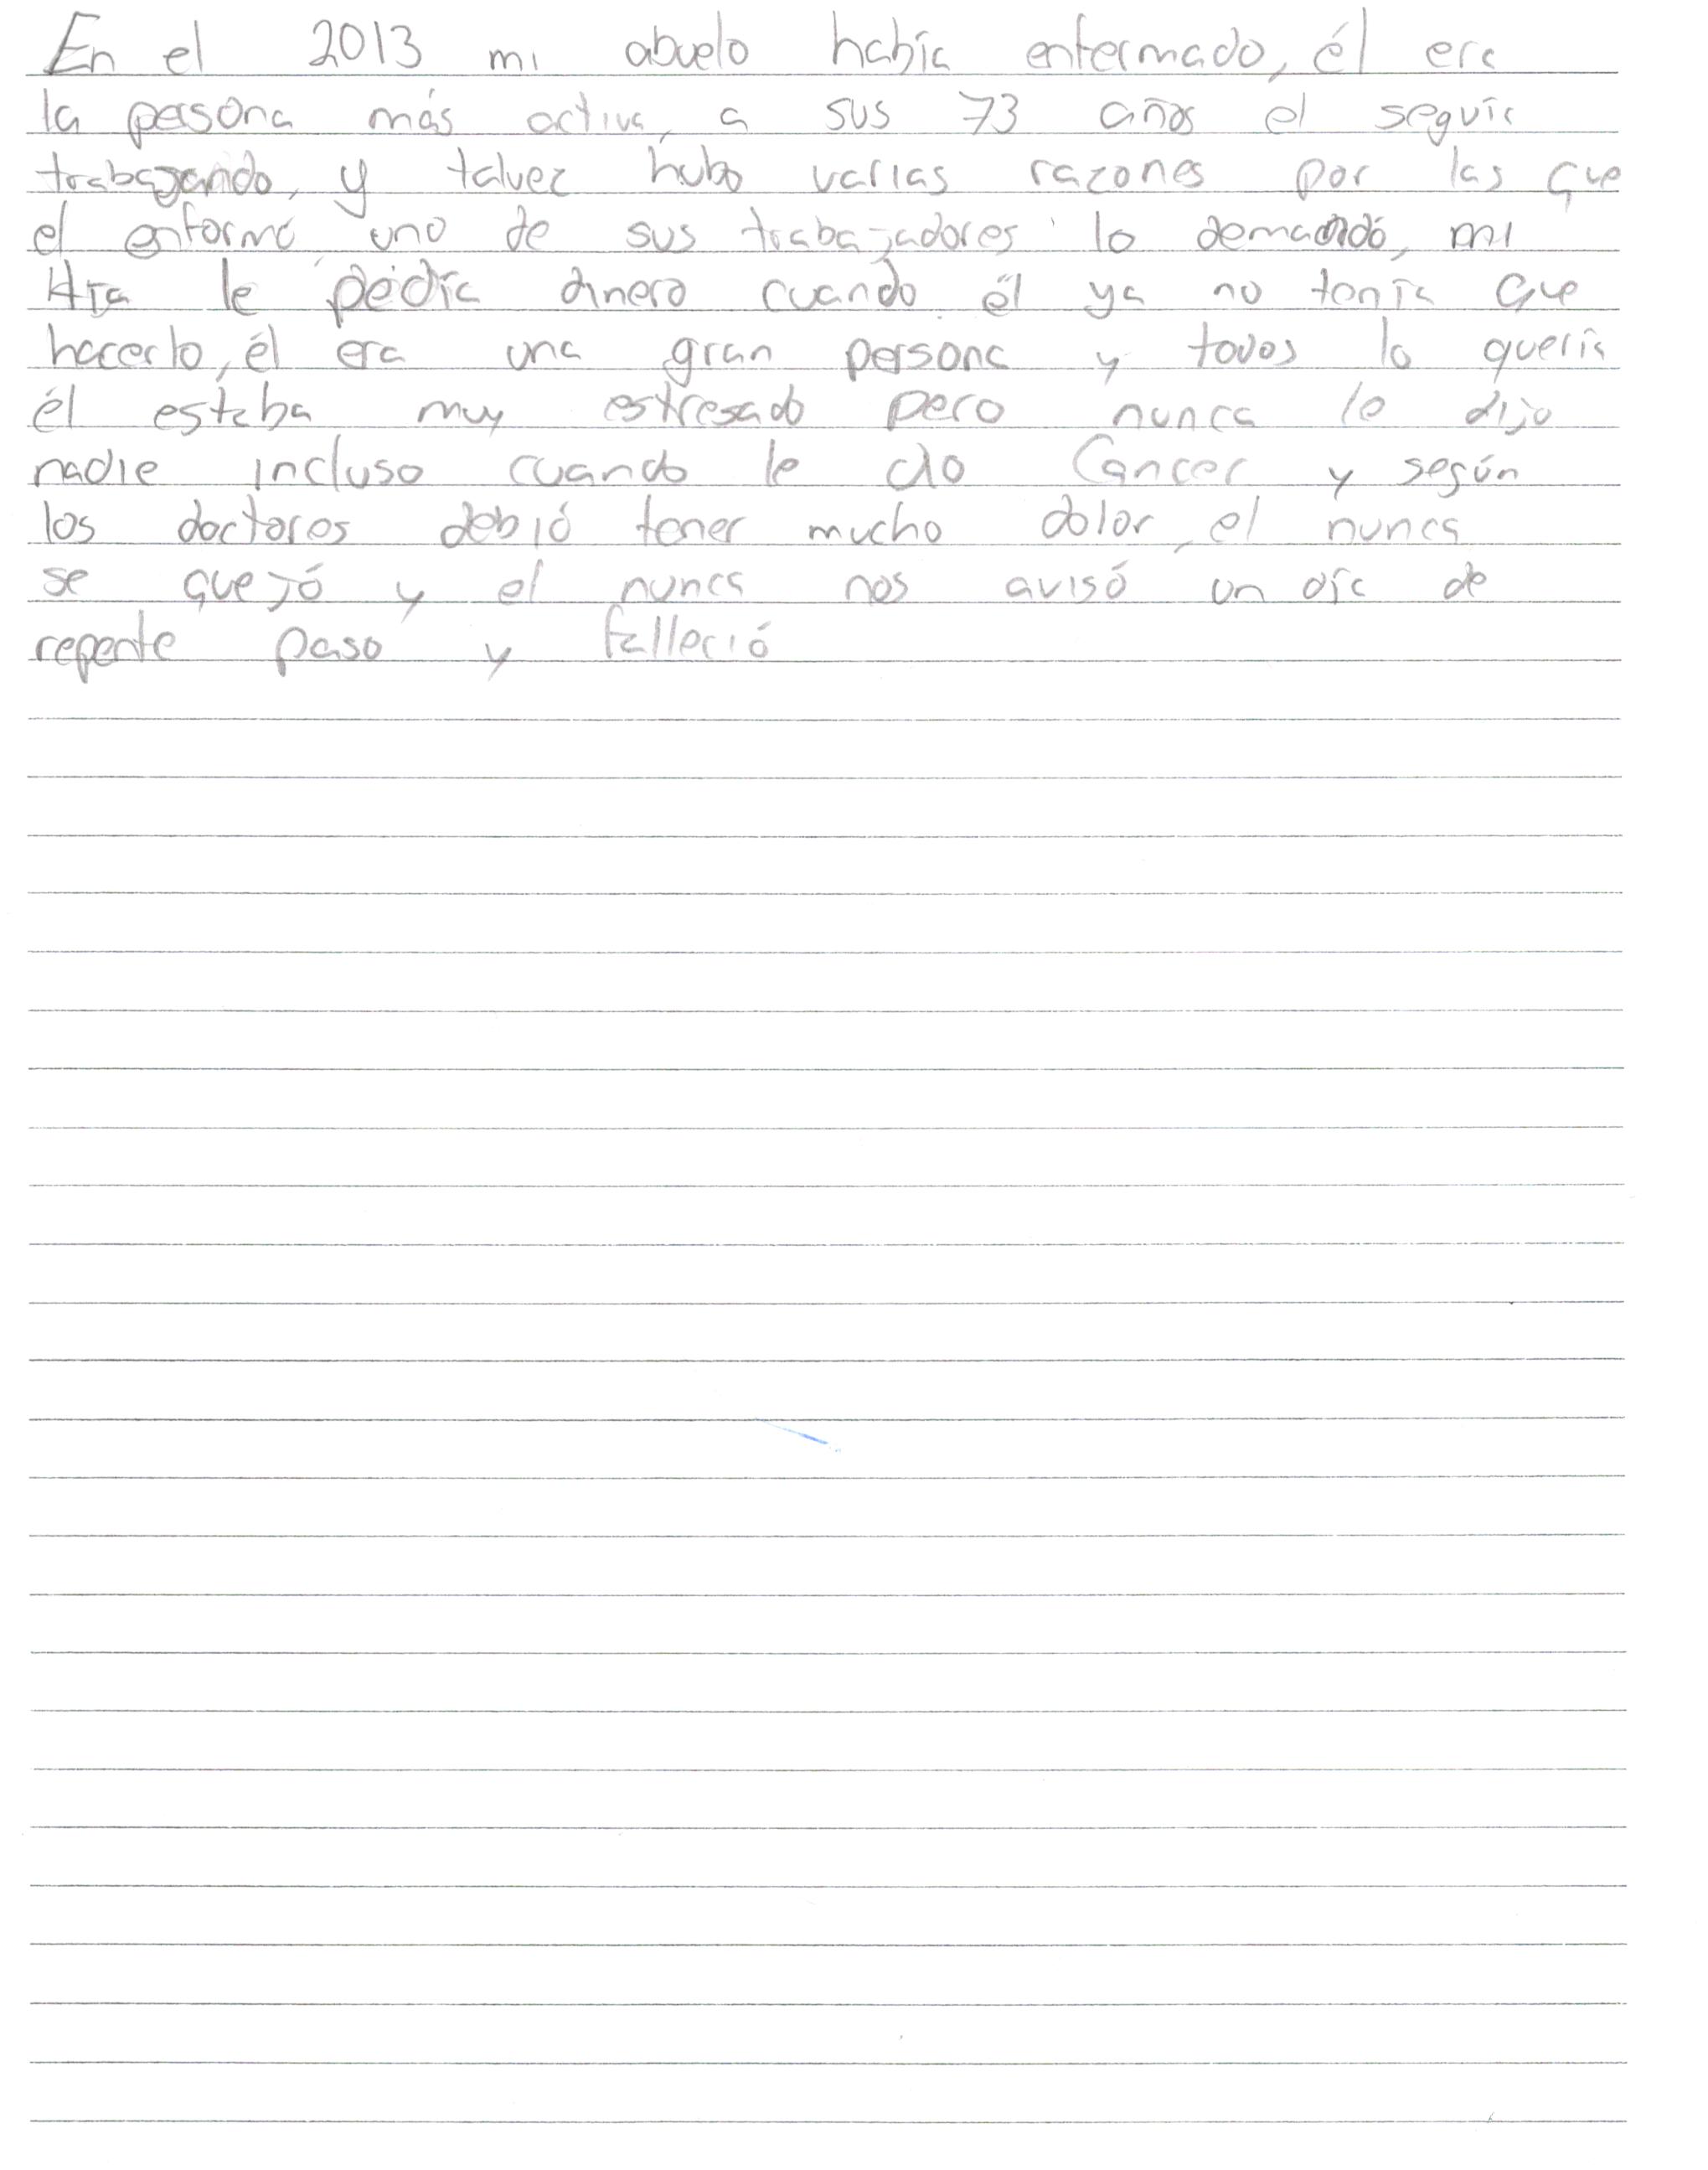 En el 2013 mi abuelo había enfermado, él era
la persona más activa, a sus 73 años el seguía
trabajando, y talvez hubo varias razones por las que
el enfermó uno de sus trabajadores lo demandó, mi
tía le pedía dinero cuando él ya no tenía que
hacerlo, él era una gran persona y todos lo quería
él estaba muy estresado pero nunca lo dijo
nadie incluso cuando le dio Cancer y según
los doctores debió tener mucho dolor, el nunca
se quejó y el nunca nos avisó un día de
repente paso y falleció